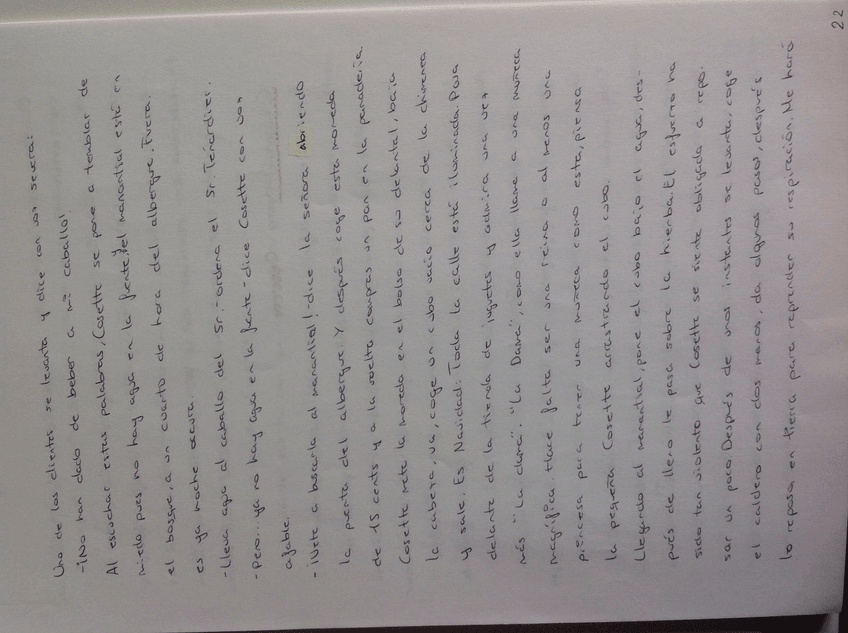 22
Uno de los clientes se levanta y dice con voz severa:
- ¡No han dado de beber a mi caballo!
Al escuchar estas palabras, Cosette se pone a temblar de
miedo pues no hay agua en la fuente, y el manantial está en
el bosque, a un cuarto de hora del albergue. Fuera,
es ya noche oscura.
- Lleva agua al caballo del Sr. - ordena el Sr. Tenardier.
- Pero.. ya no hay agua en la fuente - dice Cosette con voz
afable.
- ¡Vete a buscarla al manantial! - dice la señora abriendo
la puerta del albergue. Y después coge esta moneda
de 15 cents y a la vuelta compras un pan en la panadería.
Cosette mete la moneda en el bolso de su delantal, baja
la cabeza, va, coge un cubo vacío cerca de la chimenea
y sale. Es Navidad: Toda la calle está iluminada. Pasa
delante de la tienda de juguetes y admira una vez
más "La dama". "La Dama", como ella llama a una muñeca
magnífica. Hace falta ser una reina o al menos una
princesa para tener una muñeca como esta, piensa
la pequeña Cosette arrastrando el cubo.
Llegando al manantial, pone el cubo bajo el agua, des-
pués de lleno le posa sobre la hierba. El esfuerzo ha
sido tan violento que Cosette se siente obligada a repo-
sar un poco. Después de unos instantes se levanta, coge
el caldero con dos manos, da algunos pasos, después
lo reposa en tierra para reprender su respiración. Me hará